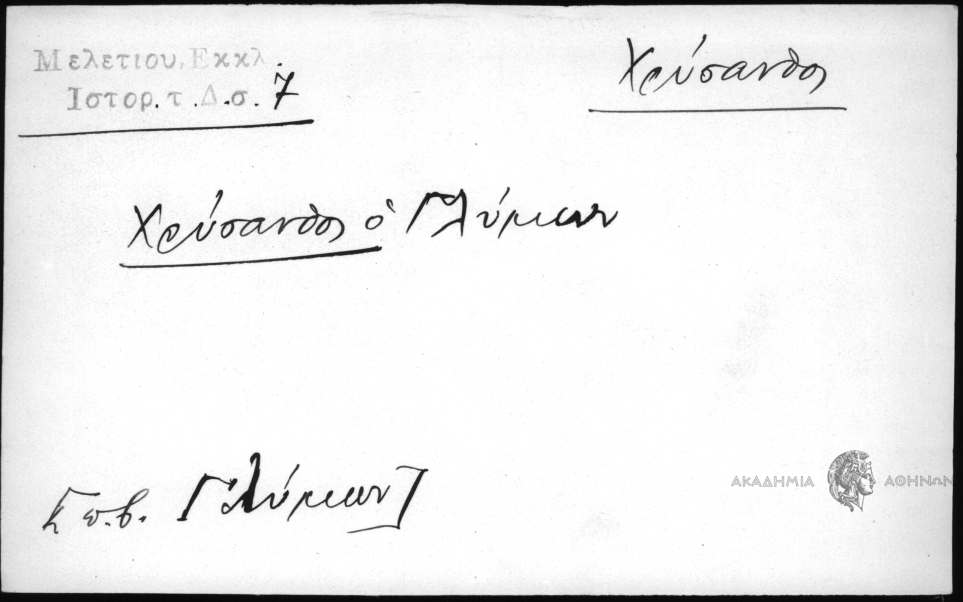 Μελετιου, Εκκλ.
Ιστορ. τ. Δ. σ. 7
Χρύσανθος
Χρύσανθος ὁ Γλύμων
[π. β. Γλύμων]
ΑΚΑΔΗΜΙΑ ΑΘΗΝΩΝ